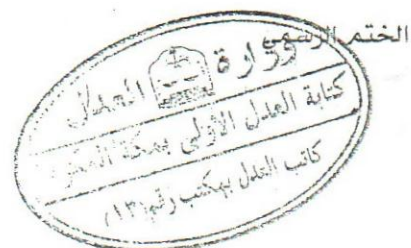 الختم الرسمي
وزارة العدل
كتابة العدل الأولى بمكة المكرمة
كاتب العدل بمكتب رقم (١٣)